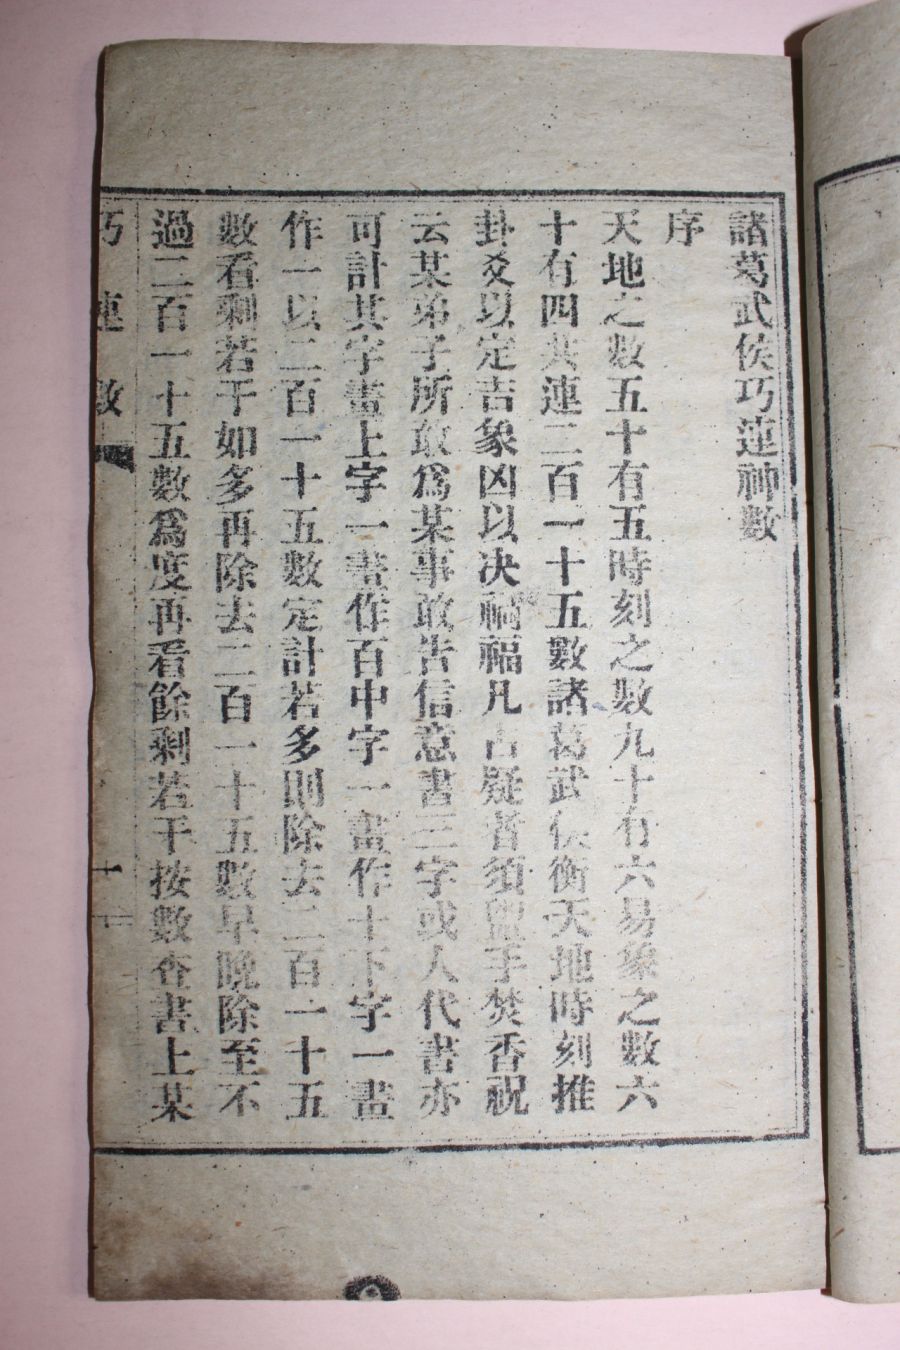 諸葛武侯巧連神數
序
天地之數五十有五時刻之數九十有六易象之數六
十有四共連二百一十五數諸葛武侯衡天地時刻推
卦爻以定吉象凶以决禍福凡占疑者須盥手焚香祝
云某弟子所敢爲某事敢告信意書三字或人代書亦
可計其字畫上字一畫作百中字一畫作十下字一畫
作一以二百一十五數定計若多則除去二百一十五
數看剩若干如多再除去二百一十五數早晚除至不
過二百一十五數爲度再看餘剩若干按數查書上某
巧連數 一